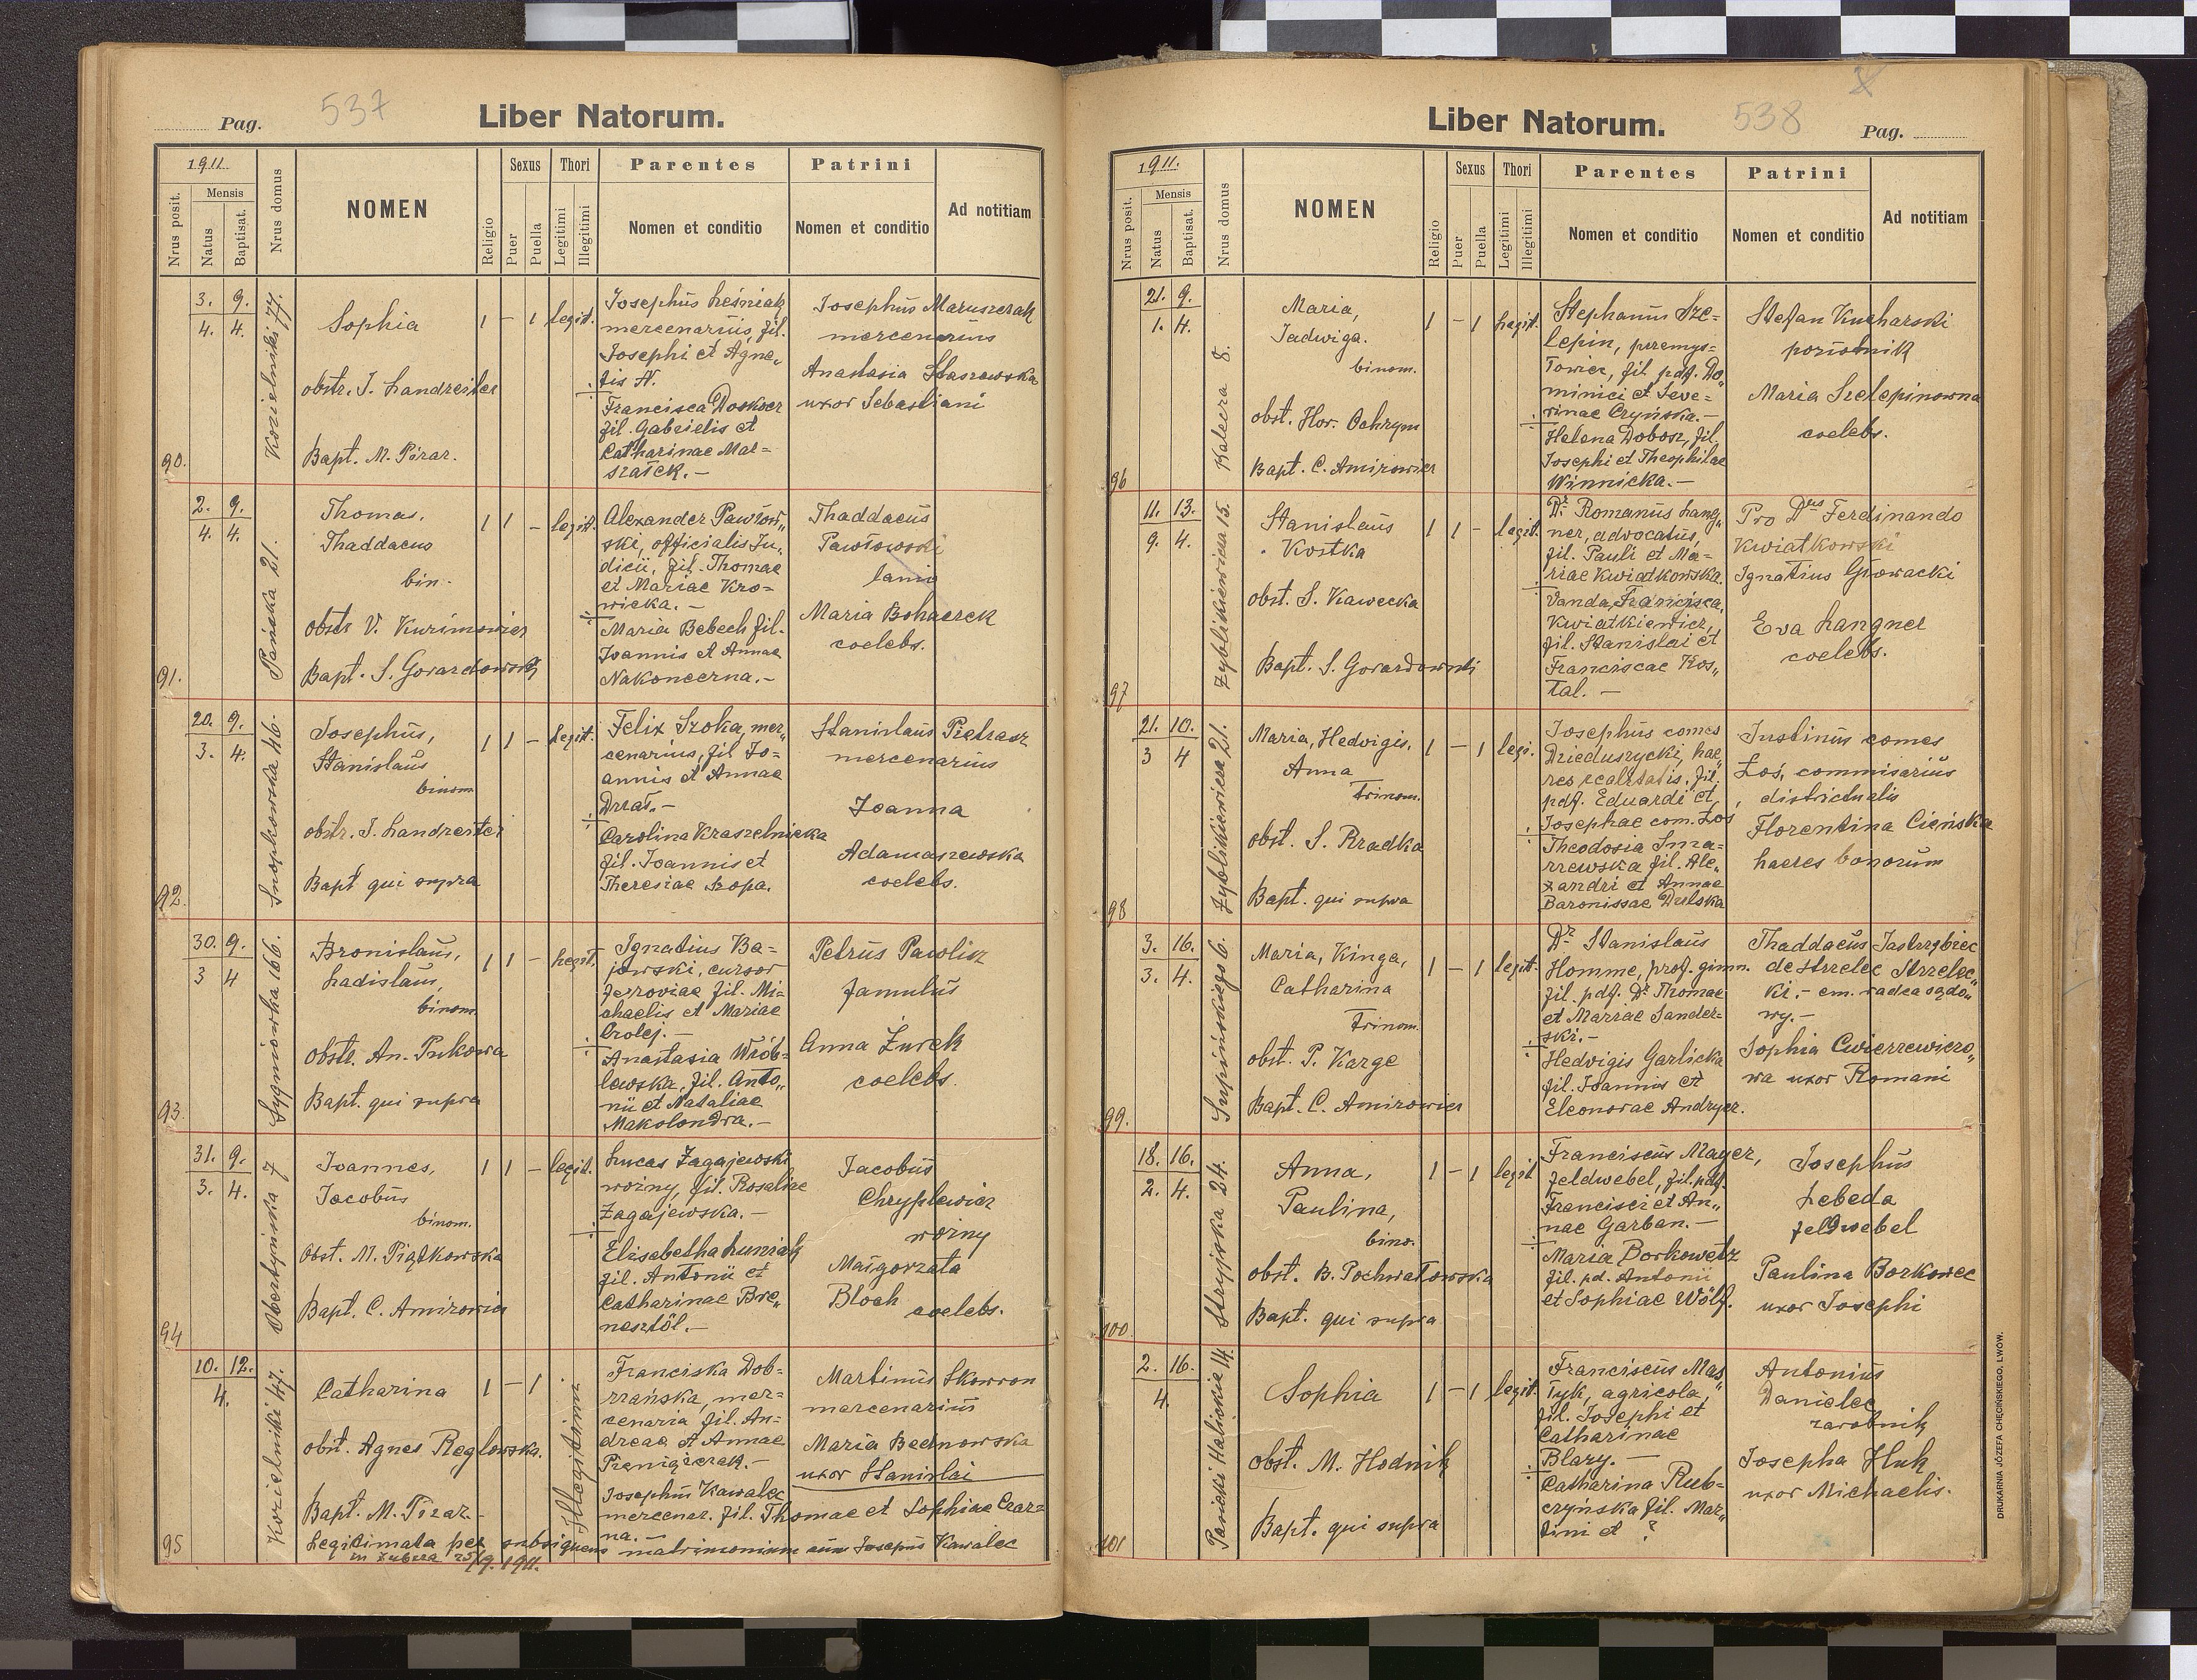 Pag. 537
Liber Natorum.
1911.
Nrus posit.
Mensis
Natus
Baptisat.
Nrus domus
NOMEN
Religio
Sexus
Puer
Puella
Thori
Legitimi
Illegitimi
Parentes
Nomen et conditio
Patrini
Nomen et conditio
Ad notitiam
90.
3. 9.
4. 4.
Kozielniki 77.
Sophia
obstr. J. Landreiter
Bapt. M. Pirar.
1 – 1 legit.
Josephus Leśniak
mercenarius, fil.
Josephi et Agne„
tis N.
Francisca Doskocz
fil. Gabrielis et
Catharinae Mar=
szałek. –
Josephus Maruszczak
mercenarius
Anastasia Staszewska
uxor Sebastiani
91.
2. 9.
4. 4.
Pańska 21.
Thomas,
Thaddaeus
bin.
obstr V. Kurimowicz
Bapt. S. Gorazdowski
1 1 – legit.
Alexander Pawłow„
ski, officialis Ju„
dicii, fil. Thomae
et Mariae Kro=
wicka. –
Maria Bebech fil.
Joannis et Annae
Nakoneczna. –
Thaddaeus
Pawłowski
lanio
Maria Bohaczek
coelebs.
92.
20. 9.
3. 4.
Snopkowska 46.
Josephus,
Stanislaus
binom
obstr. J. Landreiter
Bapt qui supra
1 1 – legit.
Felix Szoka, mer„
cenarius, fil Jo=
annis et Annae
Drzał. –
Carolina Kraszelnicka
fil. Joannis et
Theresiae Szopa.
Stanislaus Pietrasz
mercenarius
Joanna
Adamaszewska
coelebs.
93.
30. 9.
3 4
Sygniówka 166.
Bronislaus,
Ladislaus,
binom.
obstr. An. Pukowa
Bapt. qui supra
1 1 – legit.
Ignatius Ba=
jowski, cursor
ferroviae fil. Mi=
chaelis et Mariae
Crolej. –
Anastasia Wrób=
lewska, fil. Anto„
nii et Nataliae
Makolondra. –
Petrus Pawlisz
famulus
Anna Żurek
coelebs.
94
31. 9.
3. 4.
Obertyńska 7
Joannes,
Jacobus
binom.
Obst. M. Piątkowska
Bapt. C. Amirowicz
1 1 – legit.
Lucas Zagajewski
woźny, fil. Rosaliae
Zagajewska. –
Elisabetha Luniak
fil. Antonii et
Catharinae Bre„
nesztöl. –
Jacobus
Chryplewicz
woźny
Małgorzata
Bloch coelebs.
95
10. 12.
4.
Kozielniki 47.
Catharina
obst. Agnes Reglowska.
Bapt. M. Pirar. –
1 – 1
Illegitima
Franciska Dob=
rzańska, mer=
cenaria fil. An=
dreae et Annae
Pieniążczak. –
Josephus Kawalec
mercenar. fil. Thomae et Sophiae Czar=
na. –
Martinus Skowron
mercenarius
Maria Bednowska
uxor Stanislai
Legitimata per subsiquens matrimonium cum Josepus Kawalec
in Zubrza 25/9. 1911.
Liber Natorum.
538
Pag.
1911.
Nrus posit.
Mensis
Natus
Baptisat.
Nrus domus
NOMEN
Religio
Sexus
Puer
Puella
Thori
Legitimi
Illegitimi
Parentes
Nomen et conditio
Patrini
Nomen et conditio
Ad notitiam
96
21. 9.
1. 4.
Kalecza 8.
Maria,
Jadwiga.
binom.
obst. Hor. Ochrym
Bapt. C. Amirowicz
1 – 1 legit.
Stephanus Sze=
lepin, przemys=
łowiec, fil pdf. Do„
minici et Seve=
rinae Czyńska. –
Helena Dobosz, fil.
Josephi et Theophilae
Winnicka. –
Stefan Kucharski
poriotnik
Maria Szelepinowna
coelebs.
97
11. 13.
9. 4.
Zyblikiewicza 15.
Stanislaus
Kostka
obst. S. Kawecka
Bapt. S. Gorazdowski
1 1 – legit.
Dr. Romanus Lang„
ner, advocatus,
fil. Pauli et Ma=
riae Kwiatkowska.
Vanda, Francisca,
Kwiatkiewicz,
fil. Stanislai et
Franciscae Kos„
tal. –
Pro Dno Ferdinando
Kwiatkowski
Ignatius Głowacki
Eva Langner
coelebs.
98
21. 10.
3 4
Zyblikiewicza 21.
Maria, Hedvigis,
Anna
Trinom.
obst. S. Rradka
Bapt. qui supra
1 – 1 legi.
Josephus comes
Dzieduszycki, hae„
res realitatis, fil.
pdf. Eduardi et
Josephae com. Łoś
Theodosia Smaˍ
rzewska fil. Ale„
xandri et Annae
Baronissae Dulska
Justinus comes
Łoś, commisarius
districtualis
Florentina Cieńska
haeres bonorum
99.
3. 16.
3. 4.
Supińskiego 6.
Maria, Kinga,
Catharina
Trinom.
obst. P. Karge
Bapt. C. Amirowicz
1 – 1 legit.
Dr. Stanislaus
Homme, prof. gimn.
fil. pdf. Dr. Thomae
et Mariae Sander=
ski. –
Hedvigis Garlicka
fil. Joannis et
Eleonorae Andryez.
Thaddaeus Jastrzębiec
de Strzelec Strzelec„
ki. – em. radca sądo„
wy. –
Sophia Cwierzewiczo„
wa uxor Romani
100
18. 16.
2. 4.
Stryjska 24.
Anna,
Paulina,
bino.
obst. B. Pochwatowska
Bapt. qui supra
1 – 1 legit
Franciscus Mayer,
feldwebel, fil. pdf.
Francisci et An„
nae Garban. –
Maria Borkowetz
fil. pd. Antonii
et Sophiae Wölf.
Josephus
Lebeda
feldwebel
Paulina Borkowec
uxor Josephi
101
2. 16.
4.
Pasieki Halickie 14.
Sophia
obst. M. Hodnik
Bapt. qui supra
1 – 1 legit.
Franciscus Mas„
łyk, agricola,
fil. Josephi et
Catharinae
Blazy. –
Catharina Rub=
czyńska fil. Mar„
tini et ?
Antonius
Danielec
zarobnik
Josepha Huk
uxor Michaelis.
DRUKARNIA JÓZEFA CHĘCIŃSKIEGO, LWÓW.